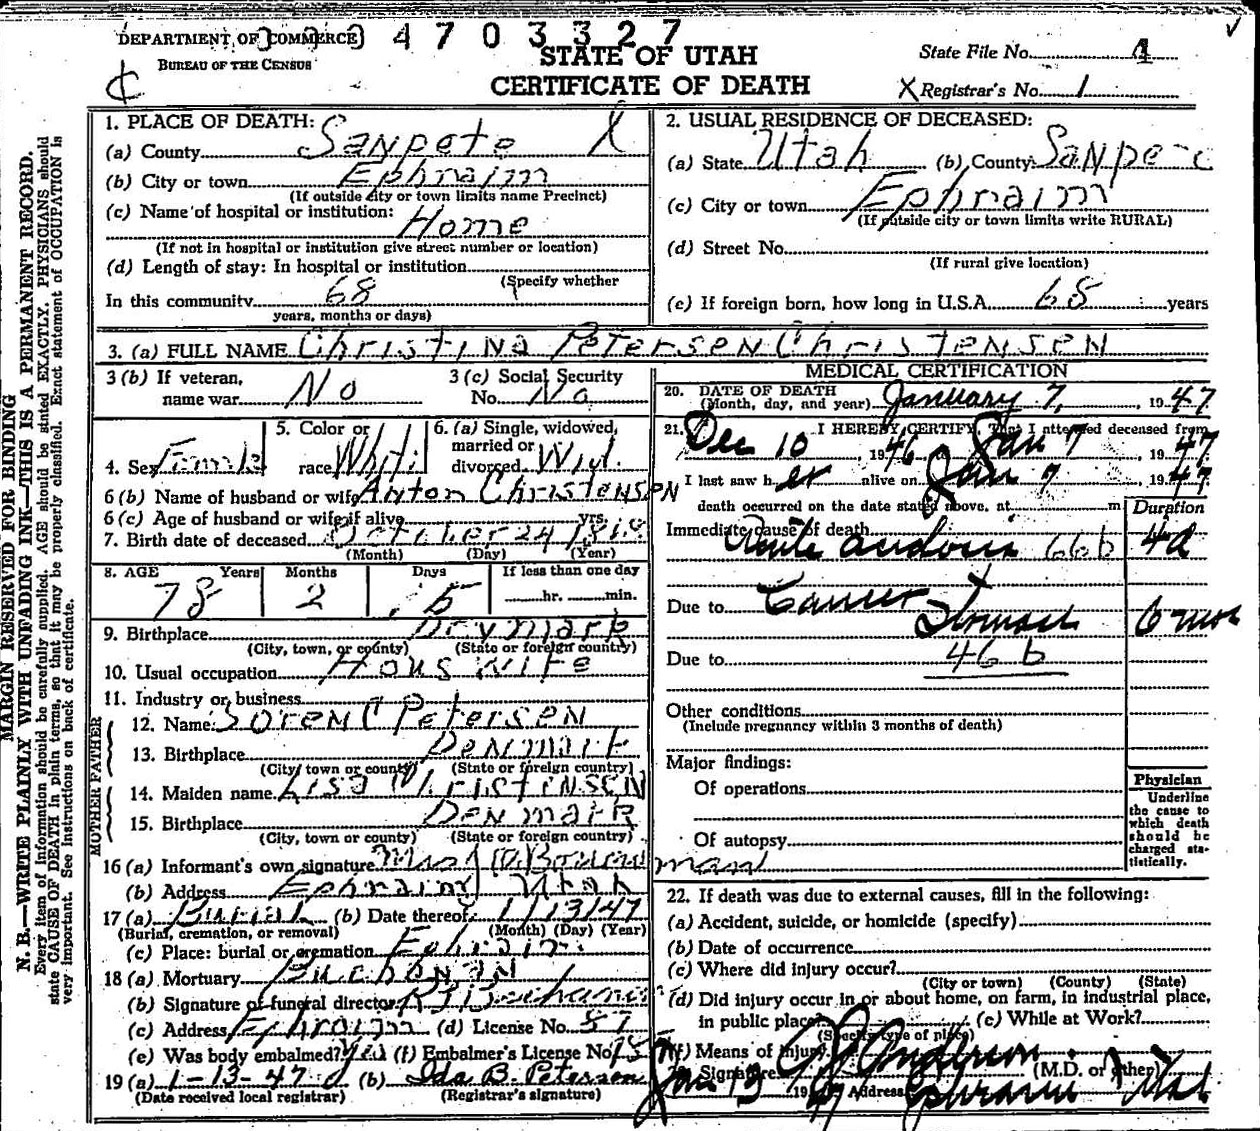 DEPARTMENT OF COMMERCE
BUREAU OF THE CENSUS
4703327
STATE OF UTAH
CERTIFICATE OF DEATH
State File No. 4
X Registrar's No. 1
MARGIN RESERVED FOR BINDING
N. B.—WRITE PLAINLY WITH UNFADING INK—THIS IS A PERMANENT RECORD.
Every item of information should be carefully supplied. AGE should be stated EXACTLY. PHYSICIANS should
state CAUSE OF DEATH in plain terms, so that it may be properly classified. Exact statement of OCCUPATION is
very important. See instructions on back of certificate.
1. PLACE OF DEATH: X
(a) County Sanpete
(b) City or town Ephraim
(If outside city or town limits name Precinct)
(c) Name of hospital or institution:
Home
(If not in hospital or institution give street number or location)
(d) Length of stay: In hospital or institution
(Specify whether
In this community 68
years, months or days)
2. USUAL RESIDENCE OF DECEASED:
(a) State Utah (b) County
(c) City or town Ephraim
(If outside city or town limits write RURAL)
(d) Street No.
(If rural give location)
(e) If foreign born, how long in U.S.A. 68 years
3. (a) FULL NAME Christina Petersen Christensen
3 (b) If veteran,
name war No
3 (c) Social Security
No. No
4. Sex
5. Color or
race
6. (a) Single, widowed,
married or
divorced Wid.
6 (b) Name of husband or wife Anton Christensen
6 (c) Age of husband or wife if alive yrs.
7. Birth date of deceased October 24
(Month) (Day) (Year)
8. AGE Years Months Days If less than one day
78 2 hr. min.
9. Birthplace
(City, town, or county) (State or foreign country)
10. Usual occupation Hous wife
11. Industry or business
FATHER
12. Name Soren C Petersen
13. Birthplace Denmark
(City, town or county) (State or foreign country)
MOTHER
14. Maiden name Christensen
15. Birthplace Denmark
(City, town or county) (State or foreign country)
16 (a) Informant's own signature Mrs
(b) Address Ephraim Utah
17 (a) Burial (b) Date thereof 1/13/47
(Burial, cremation, or removal) (Month) (Day) (Year)
(c) Place: burial or cremation Ephraim
18 (a) Mortuary Buchanan
(b) Signature of funeral director Buchanan
(c) Address Ephraim (d) License No. 57
(e) Was body embalmed? Yes (f) Embalmer's License No.
19 (a) 1-13-47 (b) Ida B. Peterson
(Date received local registrar) (Registrar's signature)
MEDICAL CERTIFICATION
20. DATE OF DEATH
(Month, day, and year) January 7, 1947
21. I HEREBY CERTIFY, That I attended deceased from
Dec 10, 1946 Jan 7, 1947
I last saw h er alive on Jan 7, 1947
death occurred on the date stated above, at m
Duration
Immediate cause of death
Acute 66b 4d
Due to Cancer
Stomach 6 mos
Due to 46 b
Other conditions
(Include pregnancy within 3 months of death)
Major findings:
Of operations
Of autopsy
Physician
Underline
the cause to
which death
should be
charged sta-
tistically.
22. If death was due to external causes, fill in the following:
(a) Accident, suicide, or homicide (specify)
(b) Date of occurrence
(c) Where did injury occur?
(City or town) (County) (State)
(d) Did injury occur in or about home, on farm, in industrial place,
in public place? (e) While at Work?
(Specify type of place)
(f) Means of injury
23. Signature Anderson (M.D. or other)
Jan 13 1947 Address Ephraim Utah